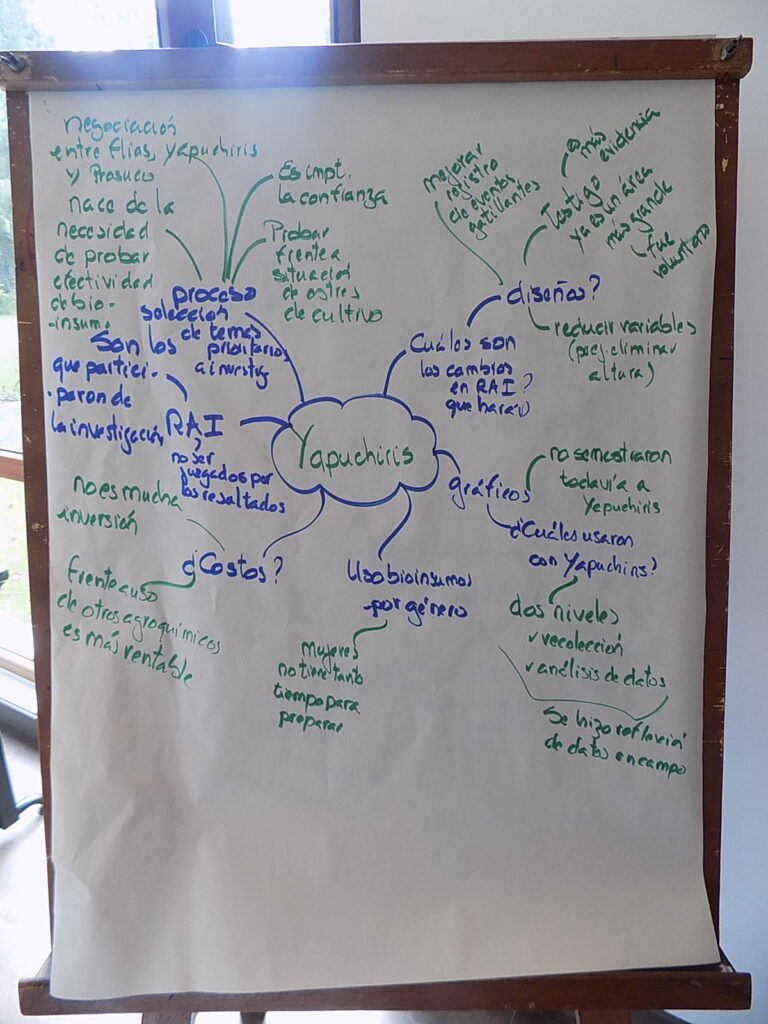 negociación
entre flias, yapuchiris
y Prosuco
nace de la
necesidad
de probar
efectividad
de bio-
-insum.
Es impt.
la confianza
Probar
frente a
situación
de estrés
de cultivo
proceso
selección
de temas
prioritarios
a investig
Son los
que partici-
-paron de
la investigación
RAI
no ser
juzgados por
los resultados
Yapuchiris
no es mucha
inversión
¿Costos?
frente a uso
de otros agroquímicos
es más rentable
Uso bioinsumos
-por género
Mujeres
no tiene tanto
tiempo para
preparar
mejorar
registro
de eventos
gatillantes
Testigo
ya es un área
más grande
más
evidencia
fue
voluntario
diseños?
reducir variables
(p.ej. eliminar
altura)
Cuáles son
los cambios
en RAI?
que harán
gráficos
no se mostraron
todavía a
Yapuchiris
¿Cuáles usaron
con Yapuchiris?
dos niveles
✓ recolección
✓ análisis de datos
Se hizo reflexión
de datos en campo